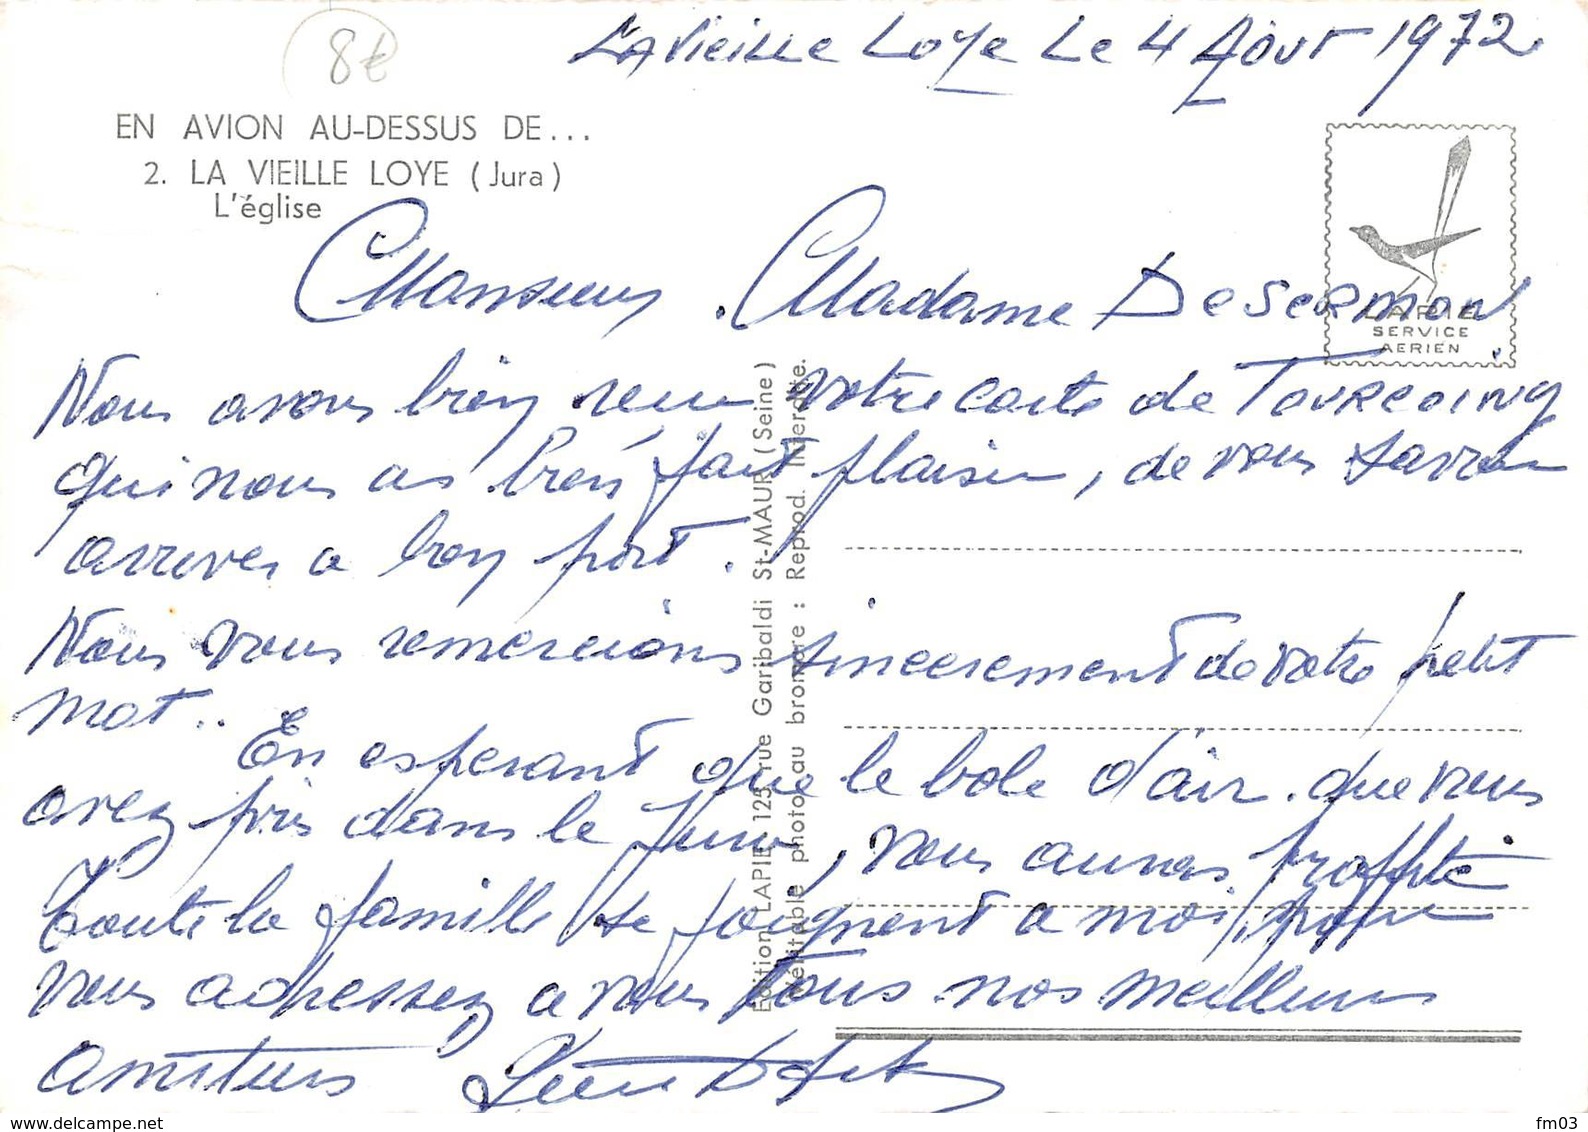 8€
La Vieille Loye Le 4 Aout 1972.
EN AVION AU-DESSUS DE...
2. LA VIEILLE LOYE (Jura)
L'église
LAPIE
SERVICE
AERIEN
Monsieur. Madame Desermon.
Nous avons bien reçu votre carte de Tourcoing
qui nous as bien fait plaisir, de vous savoir
arriver a bon port.
Nous vous remercions sincerement de votre petit
mot..
En esperant que le bole d'air. que vous
avez pris dans le Jura, vous auras proffité
Toute la famille se joignent a moi, pour
vous adressez a vous tous nos meilleurs
amitiers
Edition LAPIE 125, rue Garibaldi St-MAUR (Seine)
Véritable photo au bromure : Reprod. interdite.
www.delcampe.net
fm03